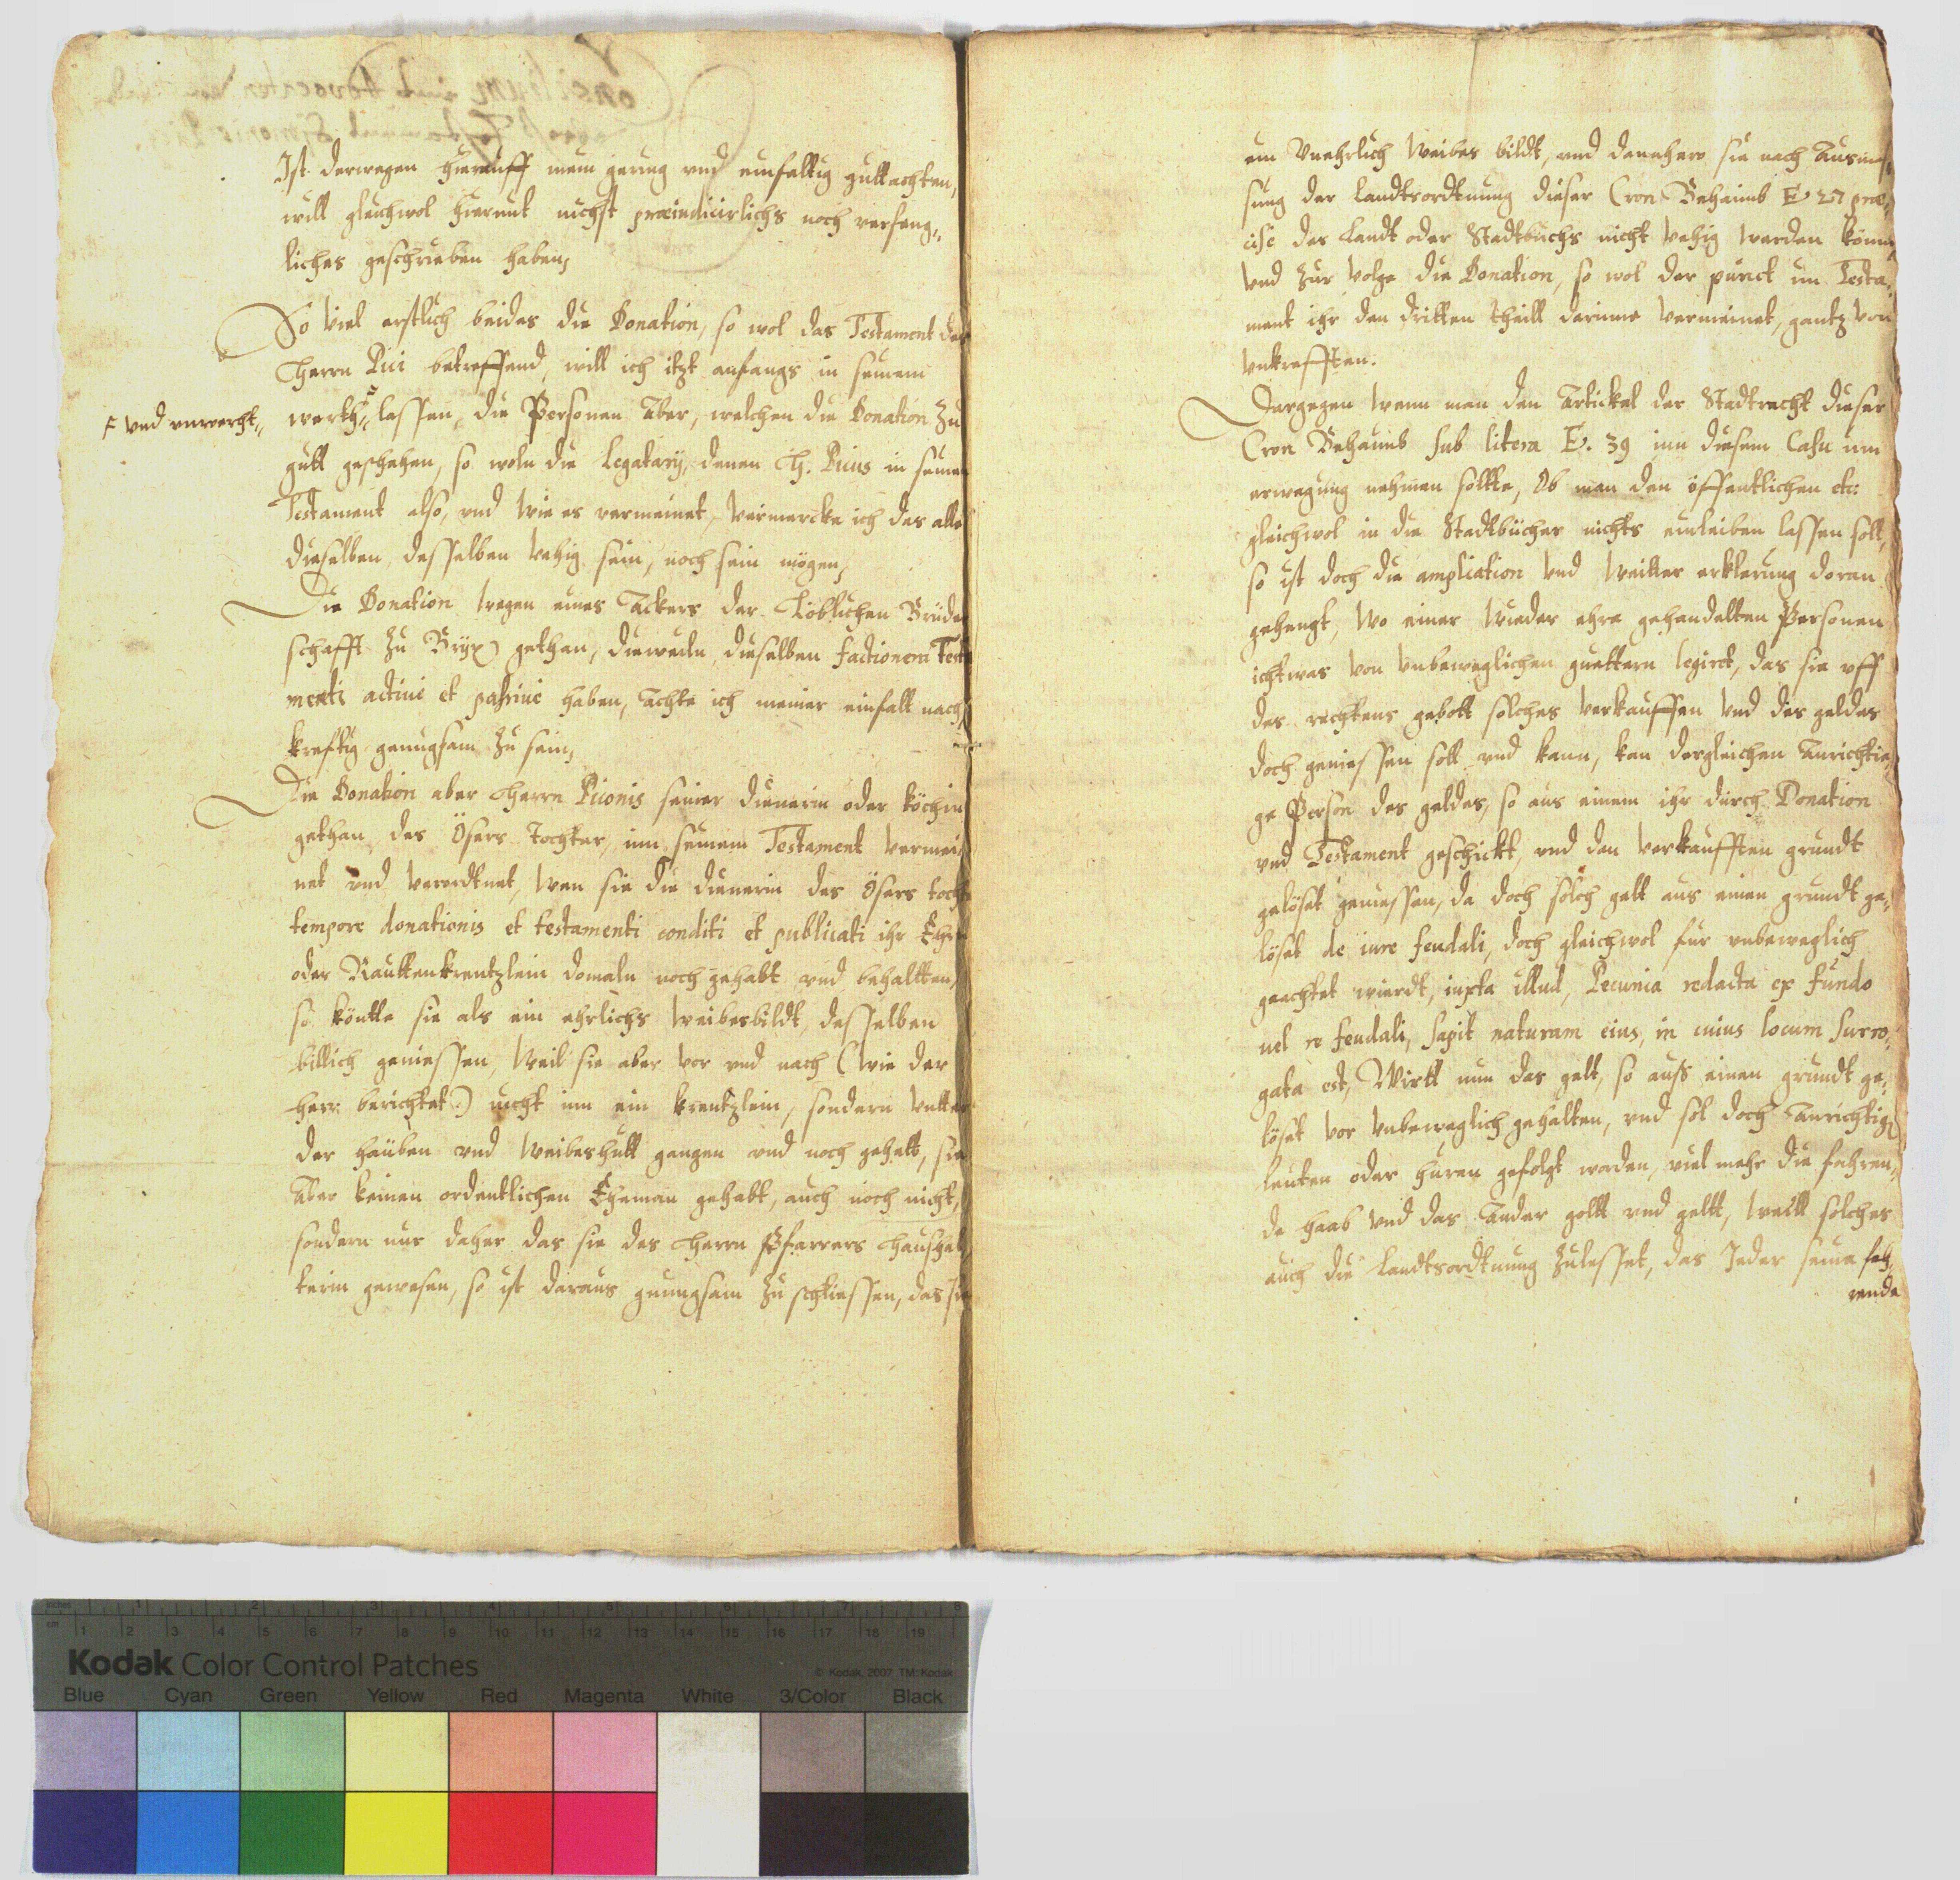 Ist derwegen hierauff mein gering vnd einfaltig guttachten,
will gleichwol hiermit nichst præiudicirlichs noch verfeng„
liches geschrieben haben,
So viel erstlich beides die Donation, so wol das Testament des
Herrn Pici betreffend, will ich itzt anfangs in seinem
F vnd vnwerth„
werth„ lassen, die Personen Aber, welchen die Donation zu
gutt geschehen, so woln die Legatarij, denen H. Picus in seinem
Testament also, vnd wie es vermeinet, vermercke ich das alle
dieselben, desselben vehig sein, noch sein mögen,
Die Donation wegen eines Ackers der Löblichen Brüder
schafft zu Brÿx gethan, dieweiln dieselben factionem Testa
menti actiuè et passiuè haben, Achte ich meiner einfalt nach,
krefftig genugsam zu sein,
Die Donation aber Herrn Piconis seiner dienerin oder köchin
gethan, des Ösers Tochter, inn seinem Testament vermei„
net vnd verordtnet, wen sie die dienerin des Ösers tocht
tempore donationis et testamenti conditi et publicati ihr Ehrn
oder Rauttenkrentzlein domaln noch gehabt vnd behaltten,
so köntte sie als ein ehrlichs weibesbildt, desselben
billich geniessen, weil sie aber vor vnd nach (wie der
herr berichtet) nicht inn ein krentzlein, sondern vntter
der haüben vnd weibeshutt gangen vnd noch gehett, sie
Aber keinen ordentlichen Eheman gehabt, auch noch nicht,
sondern nur daher das sie des Herrn Pfarrers Haushel
terin gewesen, so ist daraus gnungsam zu schliessen, das sie
ein Vnehrlich weibes bildt, vnd danehero sie nach Auswei
sung der Landtsordtnung dieser Cron Behaimb E 27 præ„
cisè des Landt oder Stadtbuchs nicht vehig werden könn
vnd zur volge die Donation, so wol der punct im Testa„
ment ihr den dritten theill darinne vermeinet, gantz von
vnkrefften.
Dargegen wenn man den Artickel der Stadtrecht dieser
Cron Behaimb sub litera E. 39 inn diesem Casu inn
erwegung nehmen soltte, Ob man den öffentlichen etc:
gleichwol in die Stadtbücher nichts einleiben lassen soll,
so ist doch die ampliation vnd weitter erklerung doran
gehengt, wo einer wieder ehre gehandelten Personen
ichtwas von vnbeweglichen guettern legiret, das sie vff
des rechtens gebott solches verkauffen vnd des geldes
doch geniessen soll vnd kann, kan dergleichen Anrichtie„
ge Person des geldes, so aus einem ihr durch Donation
vnd Testament geschickt, vnd den verkaufften grundt
gelöset geniessen, da doch solch gelt aus einen grundt ge„
löset de iure feudali, doch gleichwol fur vnbeweglich
geachtet wierdt, iuxta illud, Pecunia redacta ex fundo
uel re feudali, sapit naturam eius, in cuius locum surro„
gata est, Wirtt nun das gelt, so auß einen grundt ge„
löset vor vnbeweglich gehalten, vnd sol doch Anrichtig
leuten oder huren gefolgt worden, viel mehr die fahren„
de haab vnd das Ander goltt vnd geltt, weill solches
auch die Landtsordtnung zulesset, das Jeder seine fah„
rende